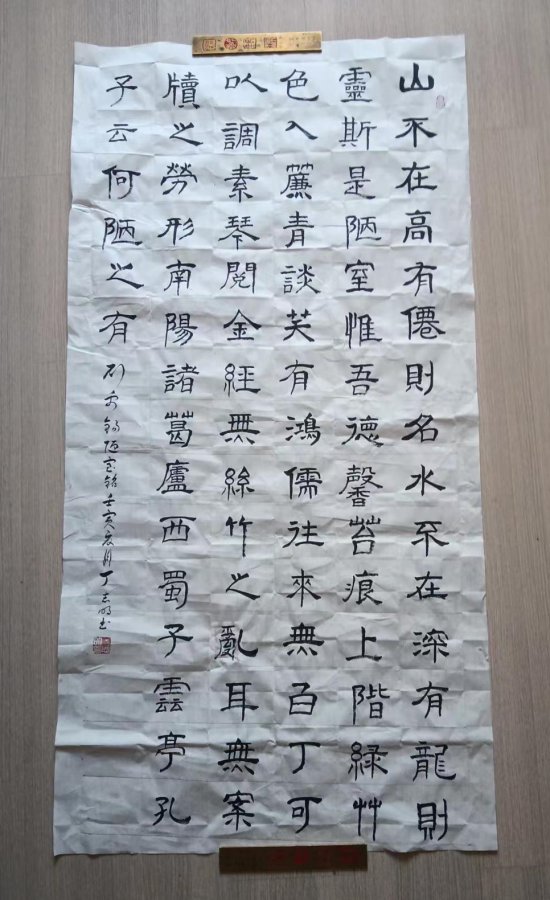 山不在高有僊則名水不在深有龍則
靈斯是陋室惟吾德馨苔痕上階綠艸
色入簾青談笑有鴻儒往來無白丁可
以調素琴閱金經無絲竹之亂耳無案
牘之勞形南陽諸葛廬西蜀子雲亭孔
子云何陋之有
刘禹錫陋室銘壬寅月丁志明书